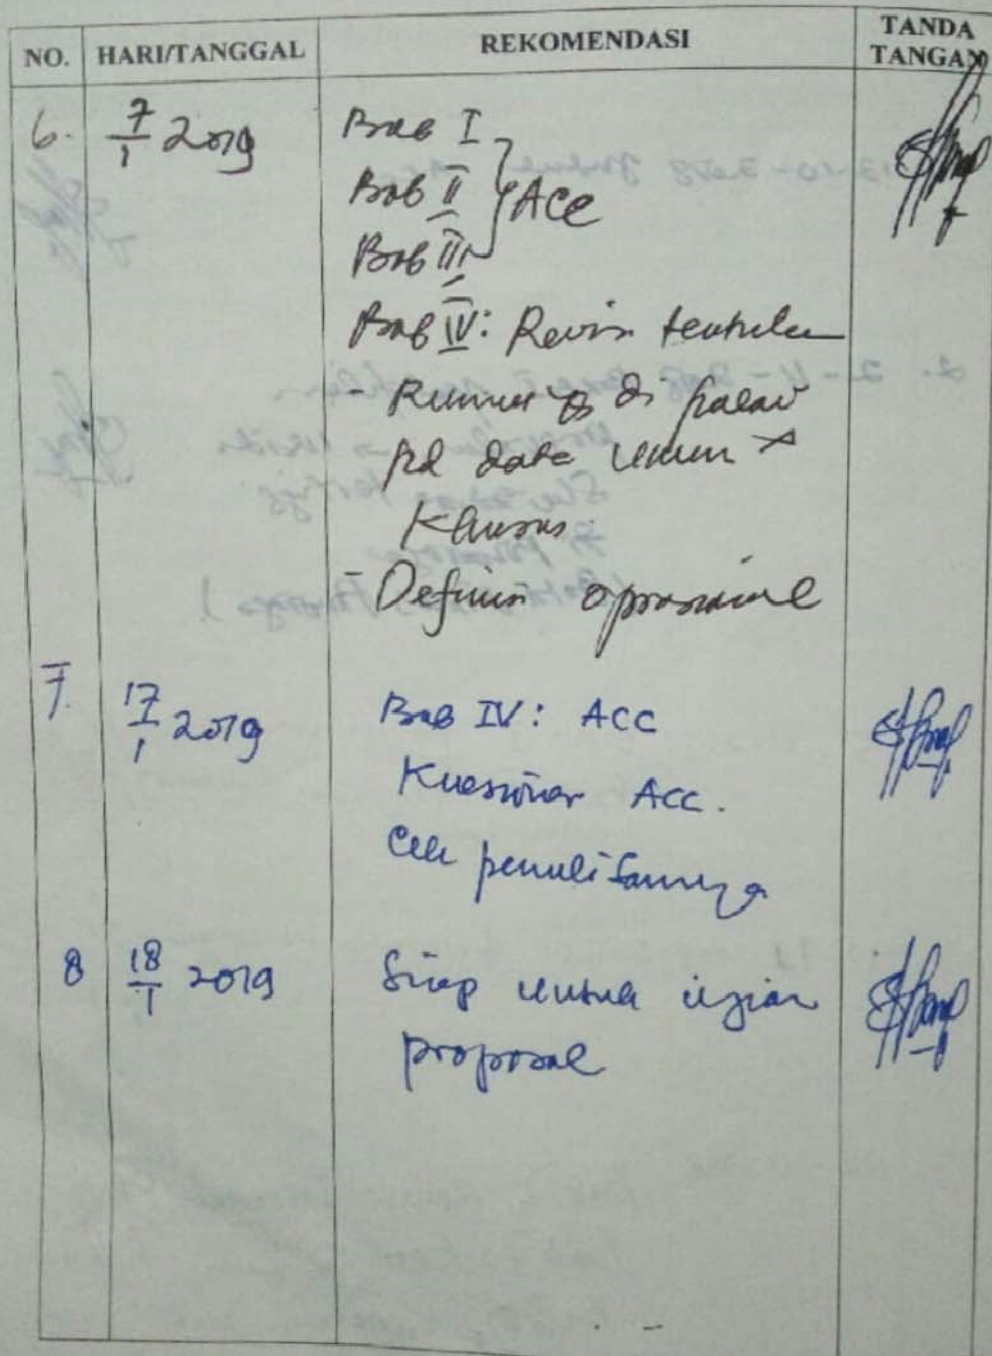 NO. HARI/TANGGAL REKOMENDASI TANDA TANGAN
6. 7/1 2019 Bab I
Bab II } ACC
Bab III
Bab IV: Revisi
- Rumus di
pd data umum
Khusus
- Definisi oprasional
7. 17/1 2019 Bab IV: ACC
Kuesioner ACC.
Cek penulisannya
8 18/1 2019 Siap untuk ujian
proposal